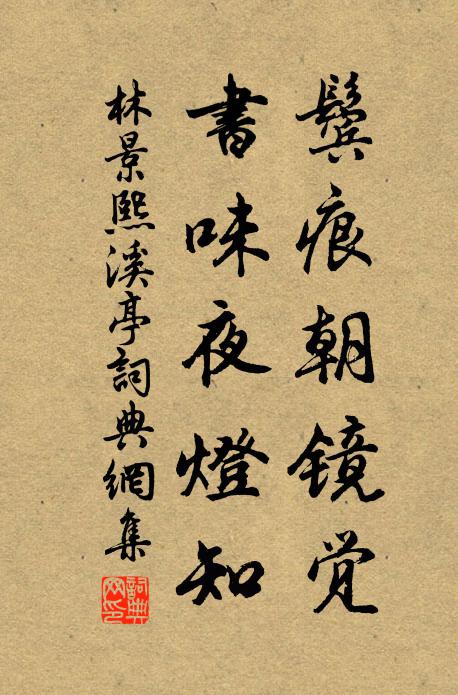 鬓痕朝镜觉
書味夜燈知
林景熙溪亭詞典網集
詞典网印